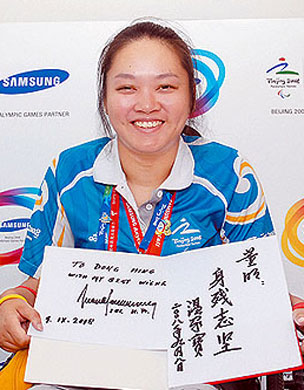 SAMSUNG
ALYMPIC GAMES PARTNER
Beijing 2008
BEIJING 200
SAMSUNG
Beijing 2008
TO DONG MING
WITH MY BEST
9.IX.2008
董明:
身残志坚
温家寳
二〇〇八年九月八日